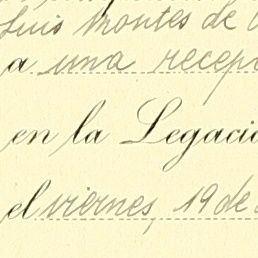 Luis Montes de
a una recep
en la Legació
el viernes, 19 de